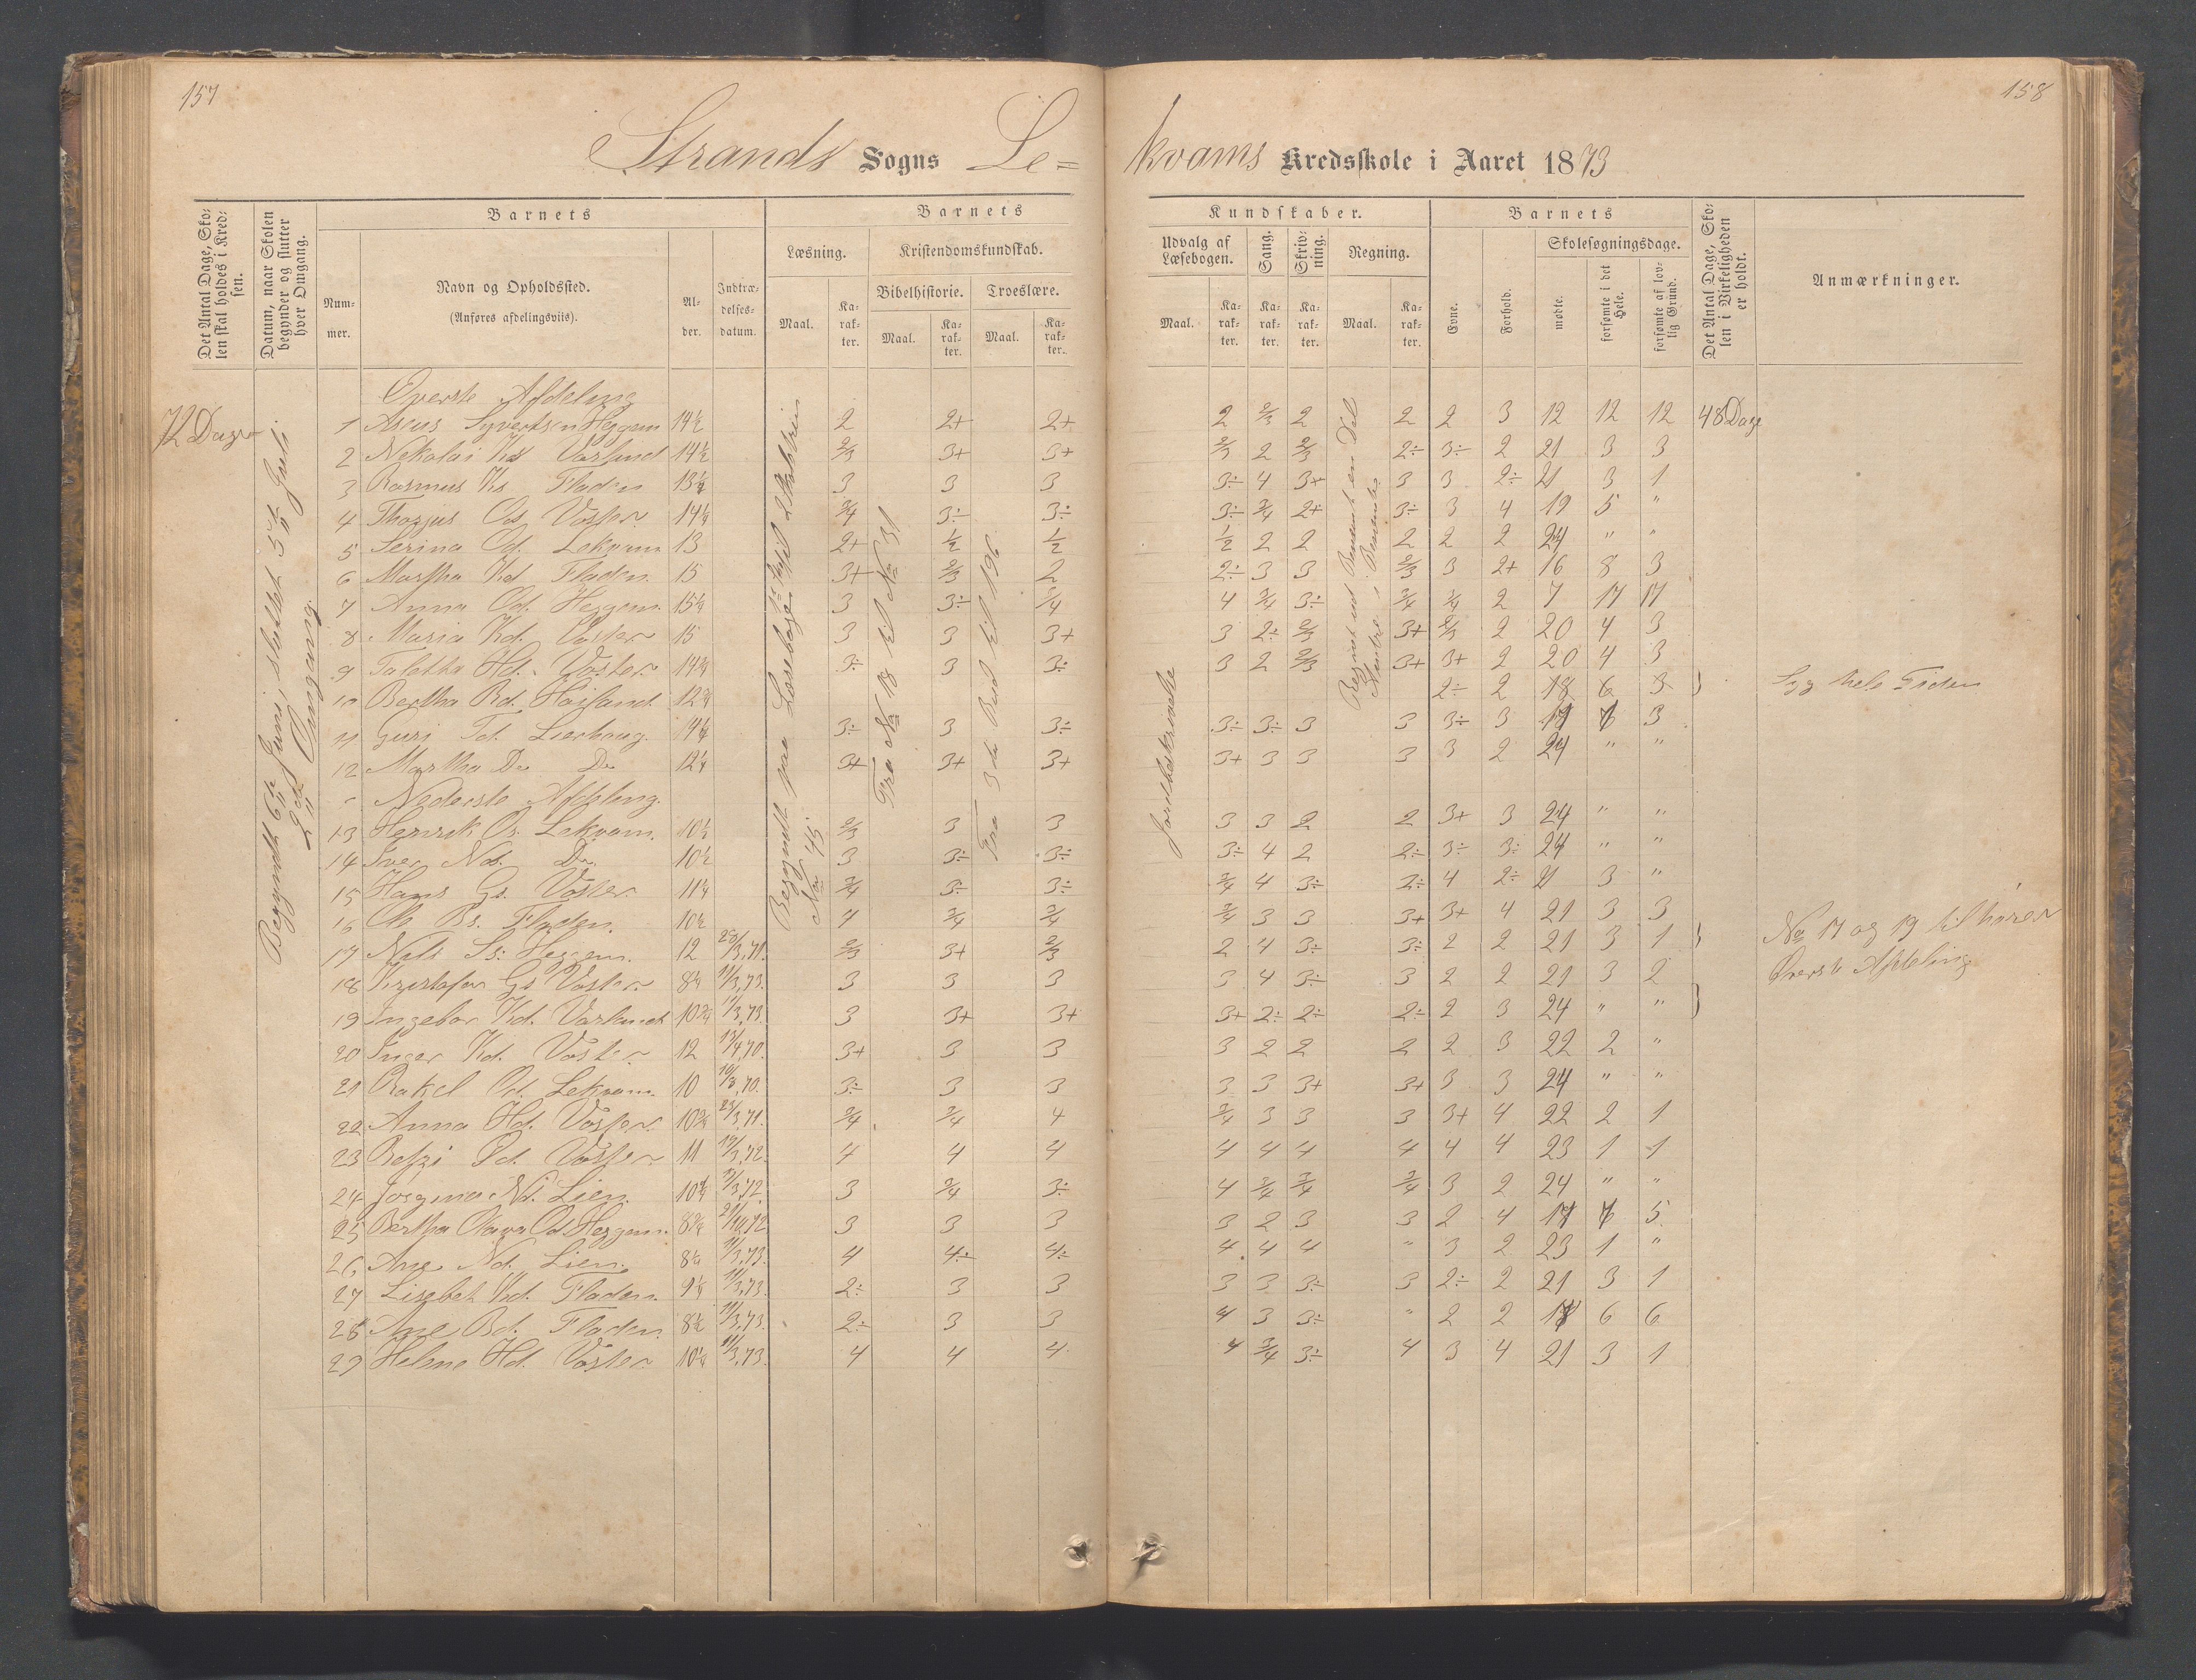 157
158
Strands Sogns Le=
kvams Kredsskole i Aaret 1873
Det Antal Dage, Sko-
len skal holdes i Kred-
sen.
Datum, naar Skolen
begynder og slutter
hver Omgang.
Barnets
Num-
mer.
Navn og Opholdssted.
(Anføres afdelingsviis).
Al-
der.
Indtræ-
delses-
datum.
Barnets
Læsning.
Kristendomskundskab.
Bibelhistorie.
Troeslære.
Maal.
Ka-
rak-
ter.
Maal.
Ka-
rak-
ter.
Maal.
Ka-
rak-
ter.
Kundskaber.
Udvalg af
Læsebogen.
Sang.
Skriv-
ning.
Regning.
Maal.
Ka-
rak-
ter.
Ka-
rak-
ter.
Ka-
rak-
ter.
Maal.
Ka-
rak-
ter.
Barnets
Evne.
Forhold.
Skolesøgningsdage.
mødte.
forsømte i det
Hele.
forsømte af lov-
lig Grund.
Det Antal Dage, Sko-
len i Virkeligheden
er holdt.
Anmærkninger.
72 Dage
Begyndt 6te Juni, sluttet 5te Juli
2den Omgang.
Fra No 18 til No 31
Fra 3die Bud til 196
Jordbeskrivelse
Øverste Afdeling
1 Syvertsen Heggem 14½ 2 2+ 2+ 2 2/3 2 2 2 3 12 12 12 48 Dage
2 Nekolai Ks Varland 14½ 2/3 3+ 3+ 2/3 2 2/3 2÷ 3÷ 2 21 3 3
3 Rasmus Ks. Fladen 13½ 3 3 3 3÷ 4 3+ 3 3 2÷ 21 3 1
4 Os Voster 14¼ 3/4 3÷ 3÷ 3÷ 3/4 2+ 3÷ 3 4 19 5 "
5 Serina Od. Lekvam 13 2+ ½ ½ ½ 2 2 2 2 2 24 " "
6 Martha Kd. Fladen. 15 3+ 2/3 2 2÷ 3 3 2/3 3 2+ 16 8 3
7 Anna Od. Heggem. 15¼ 3 3÷ 3/4 4 3/4 3÷ 3/4 3/4 2 7 17 17
8 Maria Kd. Voster 15 3 3 3+ 3 2÷ 2/3 3+ 2/3 2 20 4 3
9 Tabitha Hd. Voster 14¾ 3÷ 3 3÷ 3 2 2/3 3+ 3+ 2 20 4 3
10 Bertha Rd. Høiland 12¾ 2÷ 2 18 6 3 } Syg hele Tiden
11 Guri Td. Lierhaug. 14¼ 3÷ 3 3÷ 3÷ 3÷ 3 3 3÷ 3 17 7 3
12 Martha Do Do 12¼ 3+ 3+ 3+ 3+ 3 3 3 3 2 24 " "
Nederste Afdeling.
13 Henrik Os. Lekvam. 10½ 2/3 3 3 3 3 2 2 3+ 3 24 " "
14 Iver Ns. Do 10½ 3 3÷ 3÷ 3÷ 4 2 2÷ 3÷ 3÷ 24 " "
15 Hans Gs. Voster 11¼ 3/4 3÷ 3÷ 3/4 4 3÷ 2÷ 4 2÷ 21 3 "
16 Ole Bs. Fladen. 10½ 4 3/4 3/4 3/4 3 3 3+ 3+ 4 21 3 3
17 Nils Ss. Heggem. 12 28/3,71. 2/3 3+ 2/3 2 4 3÷ 3÷ 2 2 21 3 1 } No 17 og 19 tilhører
18 Kristofer Gs Voster 8¼ 11/3,73. 3 3 3 3 4 3÷ 3 2 2 21 3 2 Øverste Afdeling
19 Ingebor Kd. Varland 10¾ 11/3,73. 3 3+ 3+ 3+ 2÷ 2÷ 2÷ 2 3 24 " " }
20 Inger Kd. Voster 12 19/4,70. 3+ 3 3 3 2 2 2 2 3 22 2 "
21 Rakel Od. Lekvam. 10 3÷ 3 3 3 3 3+ 3+ 3 3 24 " "
22 Anna Hd. Voster. 10¾ 23/3,71. 3/4 3/4 4 3/4 3 3 3 3+ 4 22 2 1
23 Betzi Voster. 11 4 4 4 4 4 4 4 4 4 23 1 1
24 Jørgina Nd. Lien. 3 3/4 3÷ 4 3/4 3/4 3/4 3 2 24 " "
25 Bertha Od Heggem. 8¾ 3 3 3 3 2 3 3 2 4 17 7 5
26 Ane Nd. Lien. 8¼ 11/3,73. 4 4÷ 4÷ 4 4 4 " 3 2 23 1 "
27 Lisebet Kd. Fladen. 9¼ 11/3,73. 2÷ 3 3 3 3 3÷ 3 2÷ 2 21 3 1
28 Ane Bd. Fladen. 8½ 11/3,73. 2÷ 3 3 4 3 3÷ " 2 2 18 6 6
29 Helene Hd. Voster 10¼ 11/3,73. 4 4 4 4 3/4 3÷ 4 3 4 21 3 1